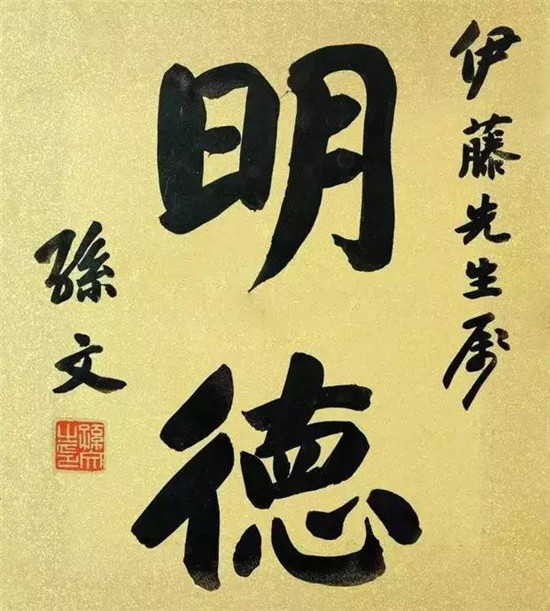 伊藤先生屬
明德
孫文
孫文之印